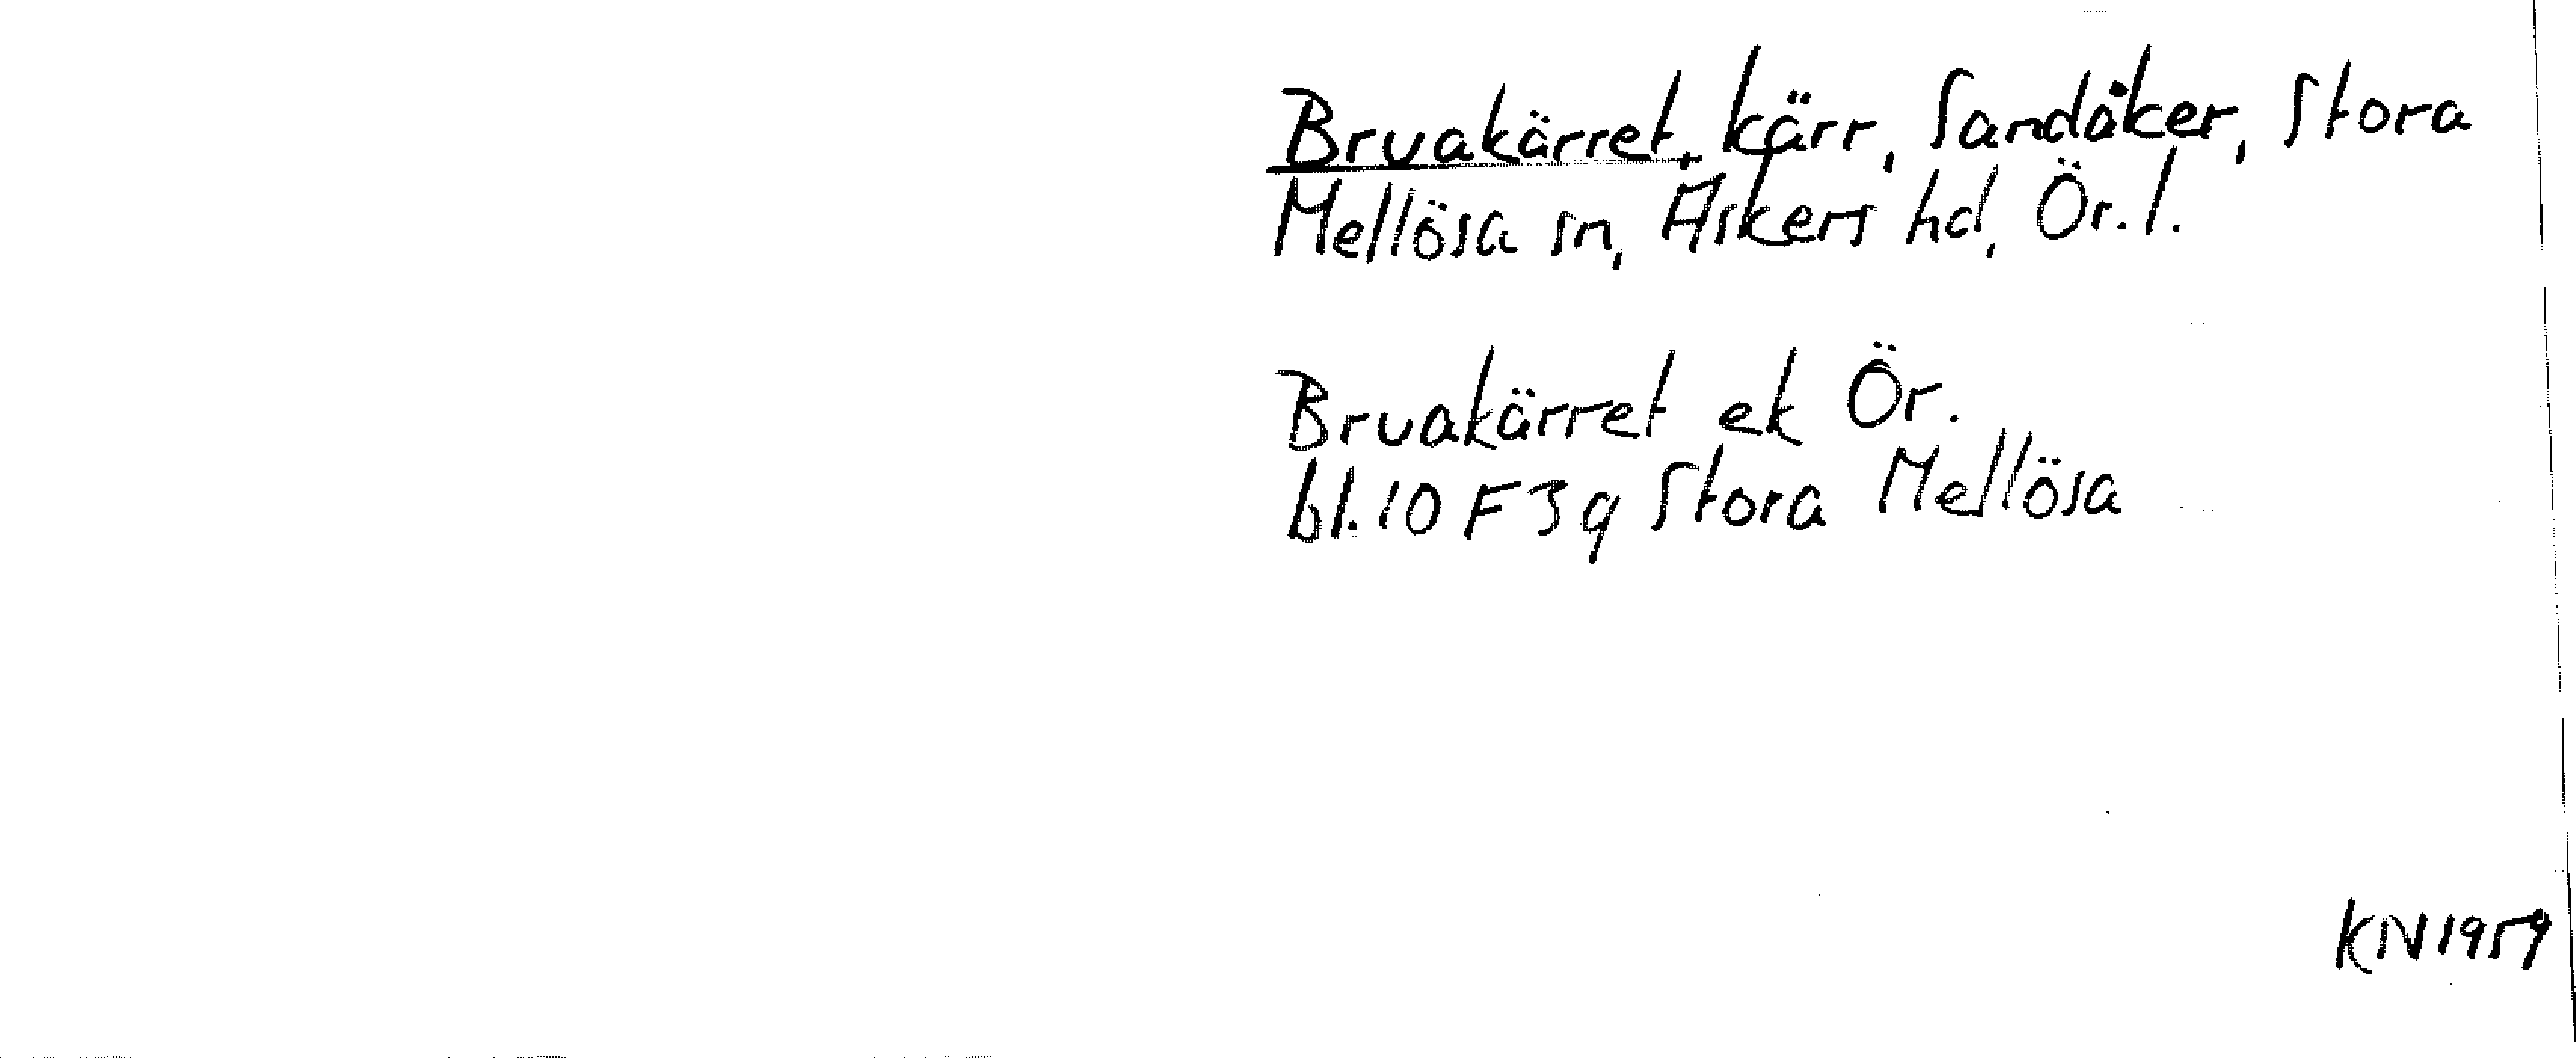 Bruakärret, kärr, Sandåker, Stora
Mellösa sn, Askers hd, Ör. l.
Bruakärret ek Ör.
bl. 10 F 3 g Stora Mellösa
KN 1959